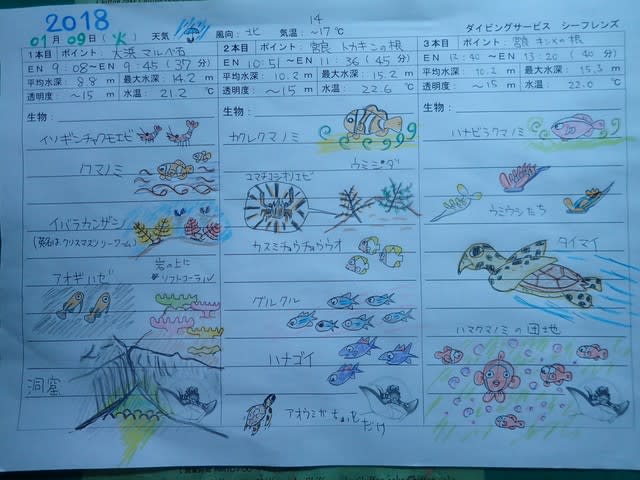 2018
01月 09日 (火) 天気 風向: 北 気温: 14 ~17℃ ダイビングサービス シーフレンズ
1本目 ポイント: 大浜
EN 9:08〜EN 9:45 (37分)
平均水深: 8.8 m 最大水深: 14.2 m
透明度: 〜15 m 水温: 21.2 ℃
生物:
イソギンチャクモエビ
クマノミ
イバラカンザシ
(英名は クリスマスツリーワーム)
アオギハゼ
岩の上に
ソフトコーラル
洞窟
2本目 ポイント: トカキンの根
EN 10:51〜EN 11:36 (45分)
平均水深: 10.2 m 最大水深: 15.2 m
透明度: 〜15 m 水温: 22.6 ℃
生物:
カクレクマノミ
ウミシダ
コマチコシオリエビ
カスミチョウチョウウオ
グルクン
ハナゴイ
アオウミガメ ちょっと
だけ
3本目 ポイント: の根
EN 12:40〜EN 13:20 (40分)
平均水深: 10.2 m 最大水深: 15.3 m
透明度: 〜15 m 水温: 22.0 ℃
生物:
ハナビラクマノミ
ウミウシたち
タイマイ
ハマクマノミの団地